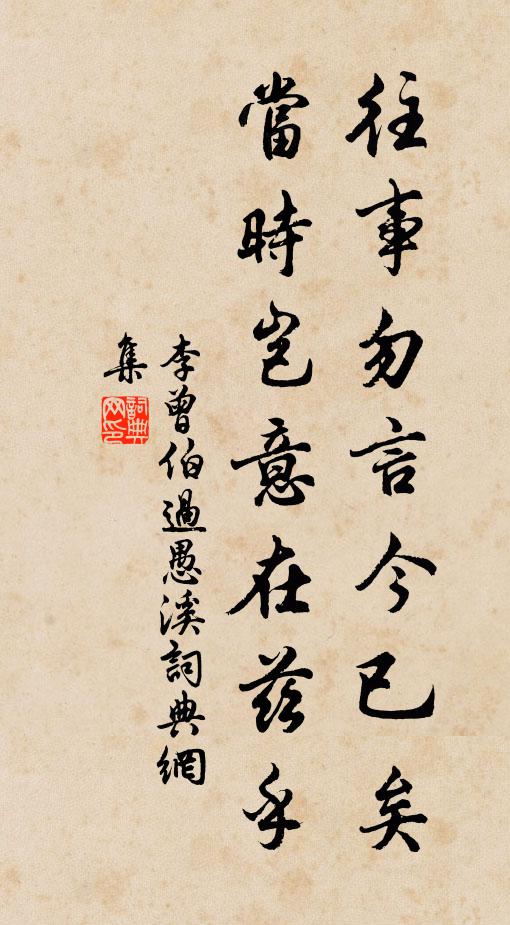 往事勿言今已矣
當時豈意在茲乎
李曾伯過愚溪詞典網
集
詞典网印